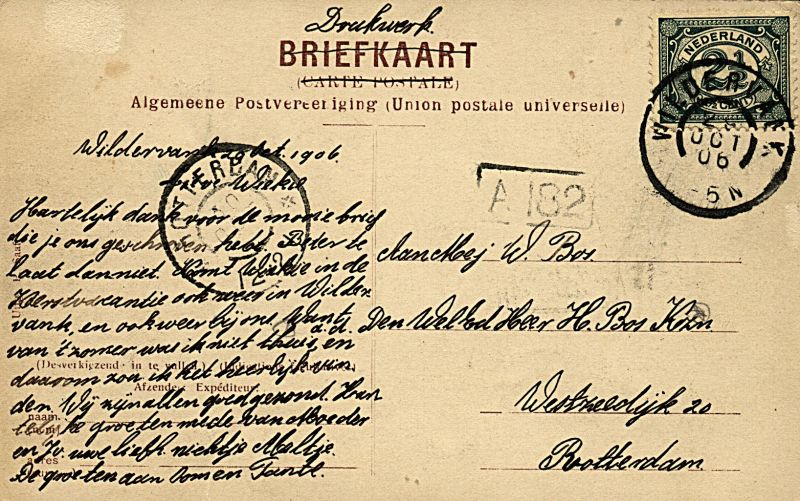 Drukwerk.
BRIEFKAART
(CARTE POSTALE)
Algemeene Postvereeniging (Union postale universelle)
NEDERLAND
2½
CENT
WILDERVANK
OCT
06
5N
Wildervank 29 Oct. 1906.
ROTTERDAM
A 182
Hartelijk dank voor de mooie brief
die je ons geschreven hebt. Beter te
laat dan niet. Komt Wiekie in de
Herstvacantie ook weer in Wilder
vank, en ook weer bij ons. Want
van 't zomer was ik niet thuis, en
daarom zou ik het heerlijk vin
den. Wij zijn allen goed gezond. Han
te groeten mede van Moeder
en Jo. uwe liefh. nichtje Meltje.
De groeten aan Oom en Tante.
Aan Mej W. Bos.
a.d. Den WelEd Heer H. Bos Kzn
Westzeedijk 20
Rotterdam.
(Desverkiezend in te vullen)
Afzender. Expéditeur.
naam
adres